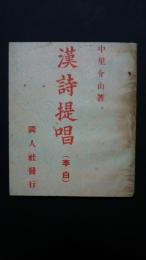 中里介山著
漢詩提唱
(李白)
隣人社發行